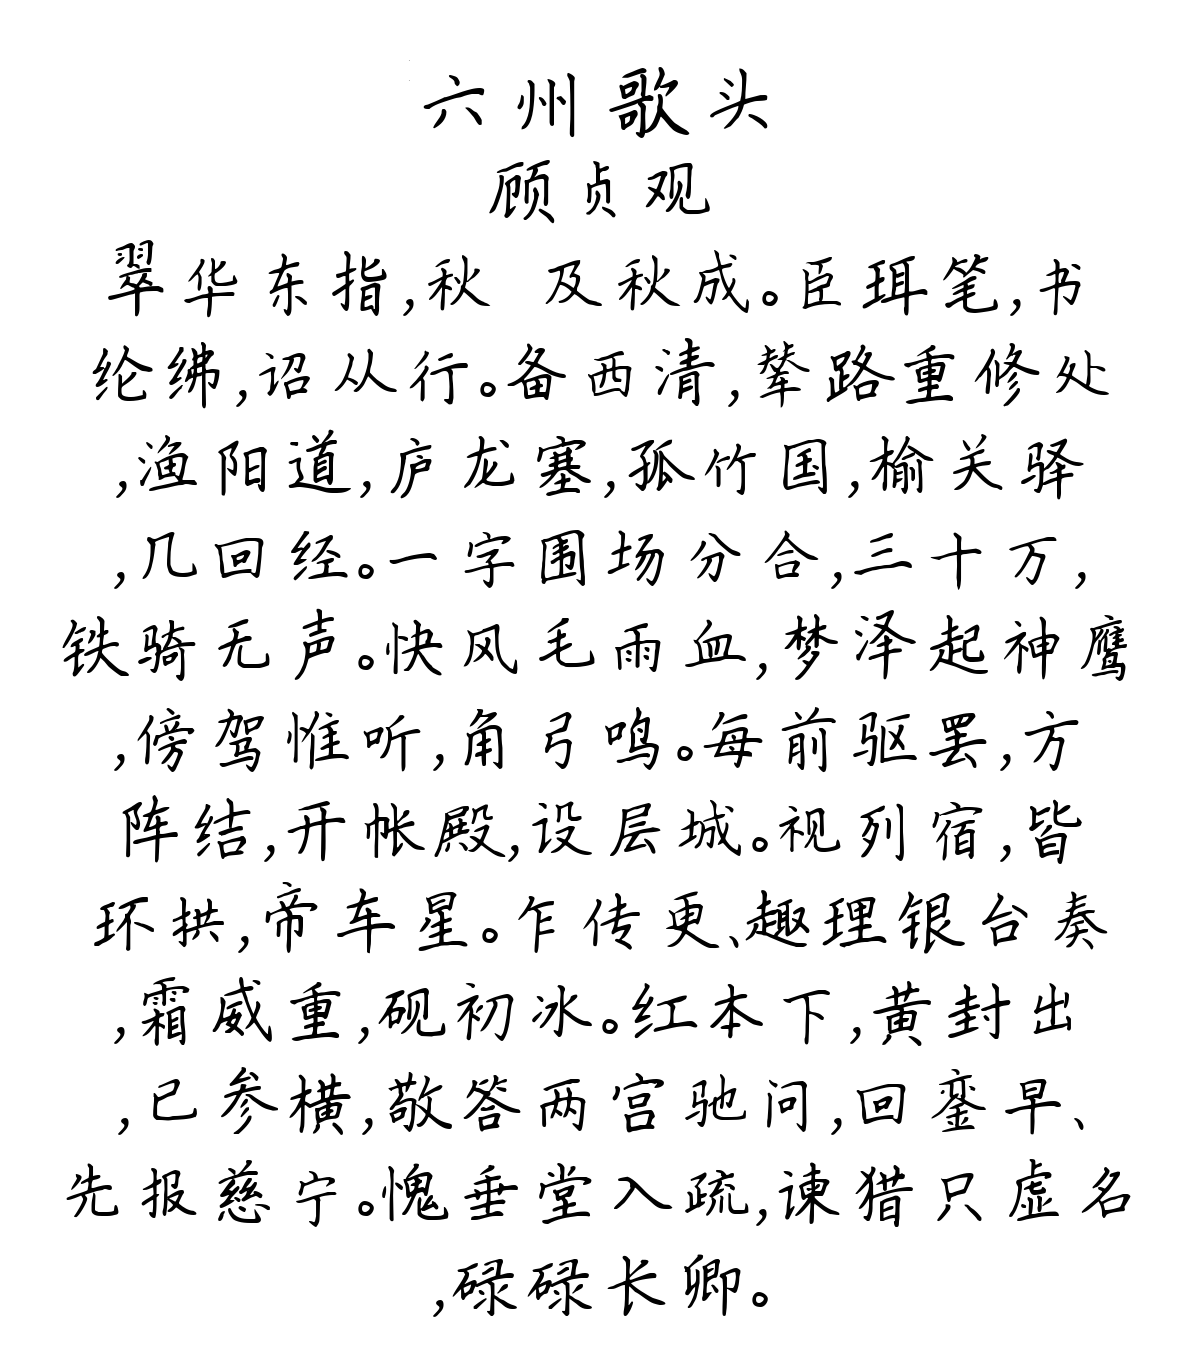 六州歌头
顾贞观
翠华东指,秋 及秋成。臣珥笔,书
纶綍,诏从行。备西清,辇路重修处
,渔阳道,庐龙塞,孤竹国,榆关驿
,几回经。一字围场分合,三十万,
铁骑无声。快风毛雨血,梦泽起神鹰
,傍驾惟听,角弓鸣。每前驱罢,方
阵结,开帐殿,设层城。视列宿,皆
环拱,帝车星。乍传更、趣理银台奏
,霜威重,砚初冰。红本下,黄封出
,已参横,敬答两宫驰问,回銮早、
先报慈宁。愧垂堂入疏,谏猎只虚名
,碌碌长卿。